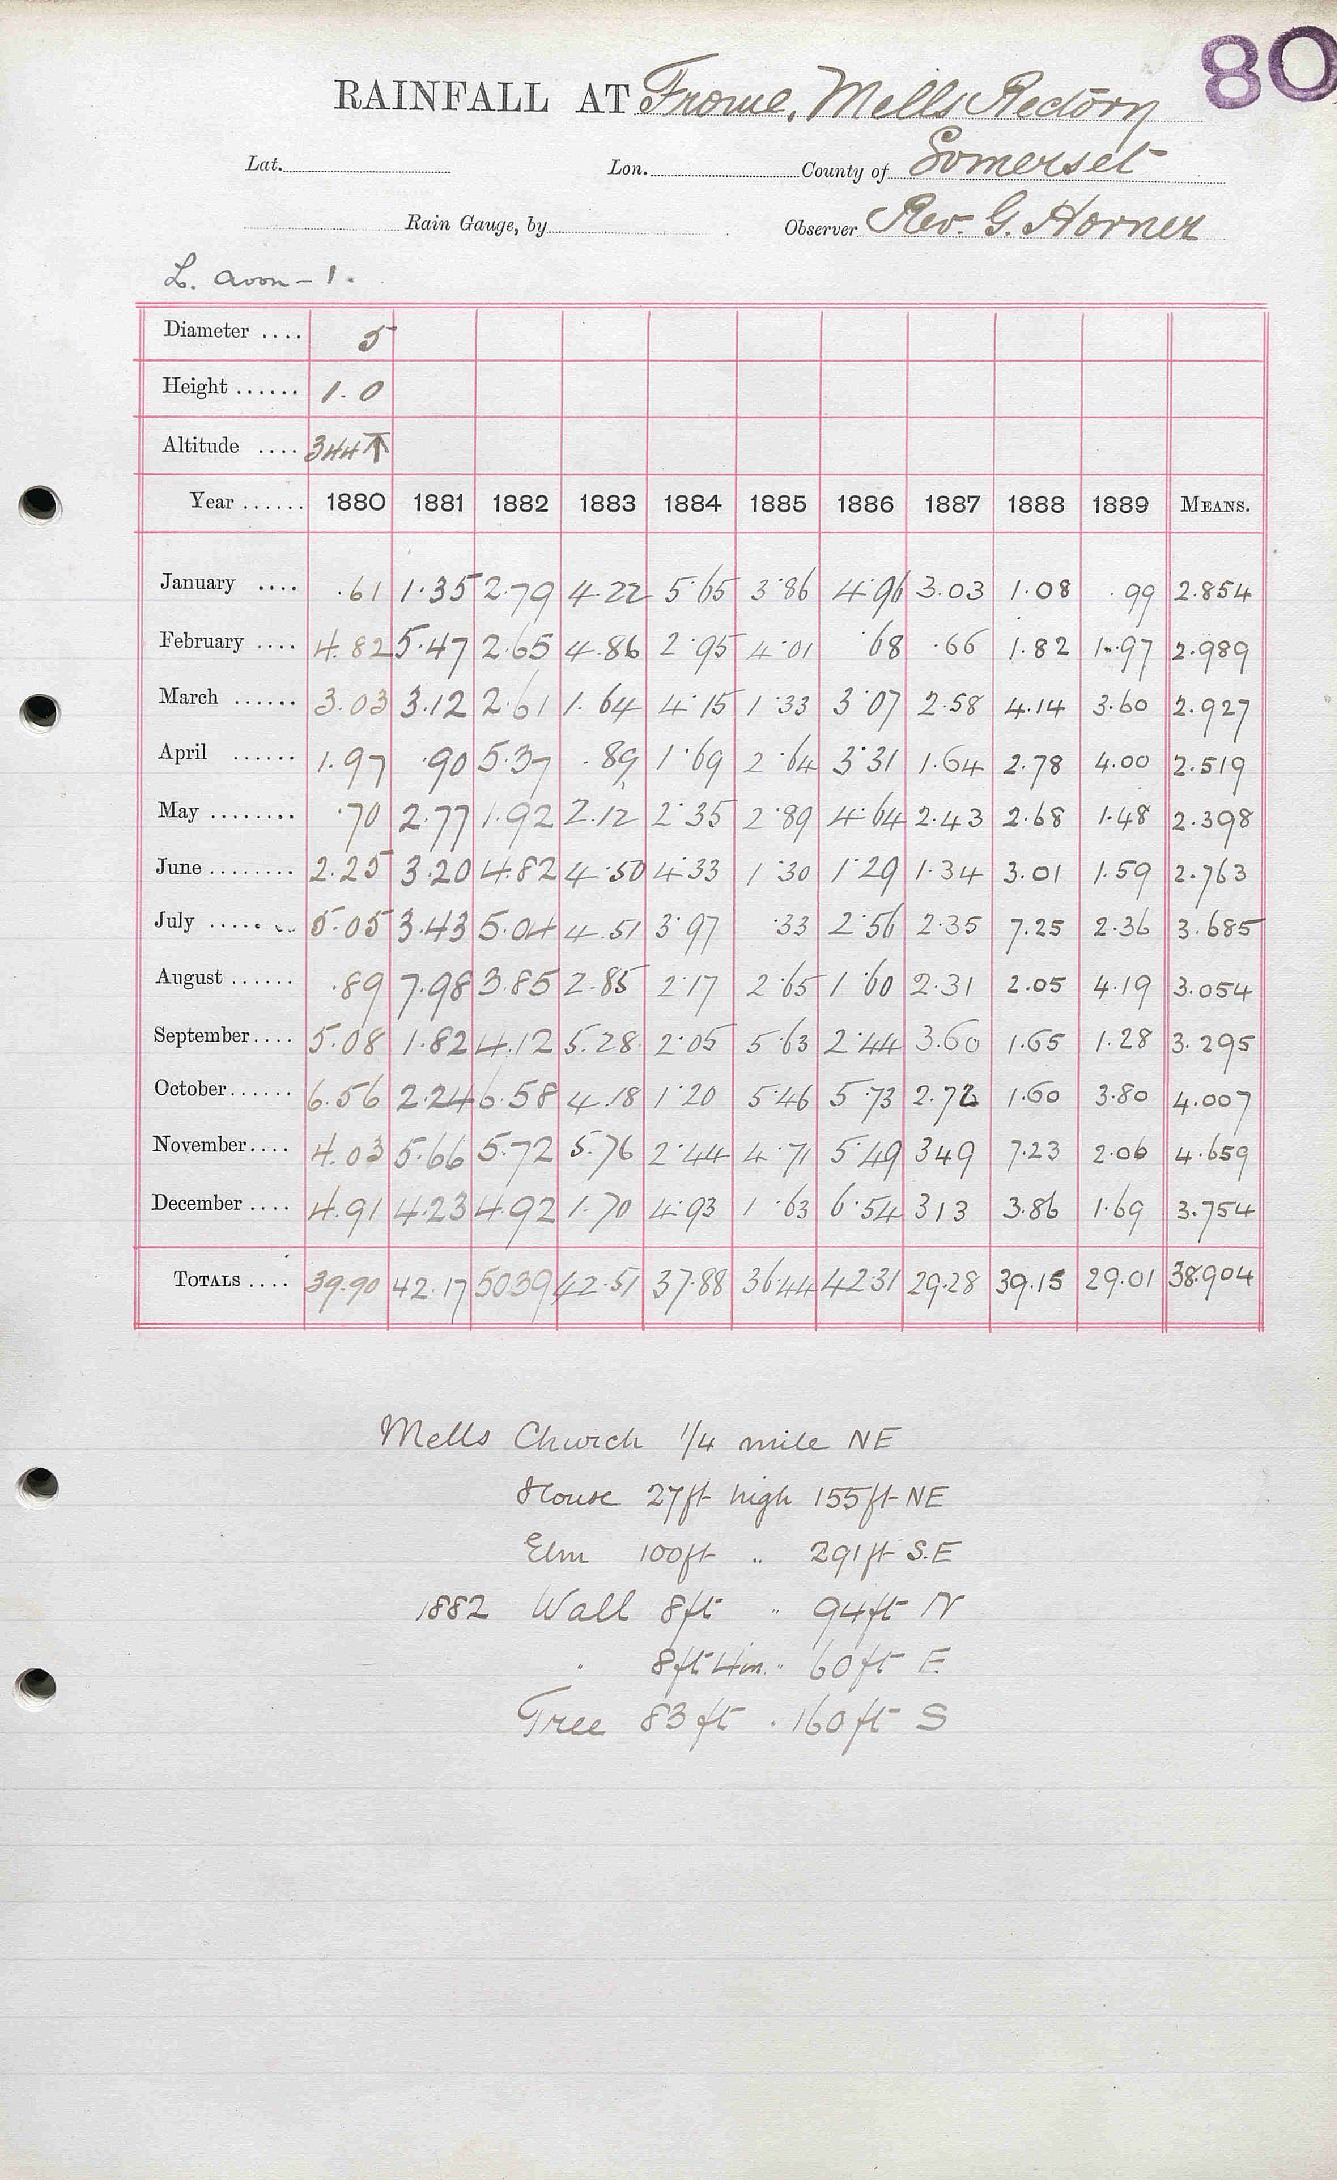 80
RAINFALL AT Frome, Mells Rectory
Lat. Lon. County of Somerset
Rain Gauge, by Observer Rev. G. Horner
L. Avon - 1.
Diameter .... 5
Height ...... 1.0
Altitude .... 344 T
Year ...... 1880 1881 1882 1883 1884 1885 1886 1887 1888 1889 MEANS.
January .... .61 1.35 2.79 4.22 5.65 3.86 4.96 3.03 1.08 .99 2.854
February .... 4.82 5.47 2.65 4.86 2.95 4.01 .68 .66 1.82 1.97 2.989
March ...... 3.03 3.12 2.61 1.64 4.15 1.33 3.07 2.58 4.14 3.60 2.927
April ...... 1.97 .90 5.37 .89 1.69 2.64 3.31 1.64 2.78 4.00 2.519
May ........ .70 2.77 1.92 2.12 2.35 2.89 4.64 2.43 2.68 1.48 2.398
June ........ 2.25 3.20 4.82 4.50 4.33 1.30 1.29 1.34 3.01 1.59 2.763
July ........ 5.05 3.43 5.04 4.51 3.97 .33 2.56 2.35 7.25 2.36 3.685
August ...... .89 7.98 3.85 2.85 2.17 2.65 1.60 2.31 2.05 4.19 3.054
September .... 5.08 1.82 4.12 5.28 2.05 5.63 2.44 3.60 1.65 1.28 3.295
October ...... 6.56 2.24 6.58 4.18 1.20 5.46 5.73 2.72 1.60 3.80 4.007
November .... 4.03 5.66 5.72 5.76 2.44 4.71 5.49 349 7.23 2.06 4.659
December .... 4.91 4.23 4.92 1.70 4.93 1.63 6.54 313 3.86 1.69 3.754
TOTALS .... 39.90 42.17 5039 42.51 37.88 36.44 4231 29.28 39.15 29.01 38.904
Mells Church 1/4 mile NE
House 27ft high 155ft NE
Elm 100ft " 291ft S.E
1882 Wall 8ft " 94ft N
" 8ft 4in. " 60ft E
Tree 83ft . 160ft S